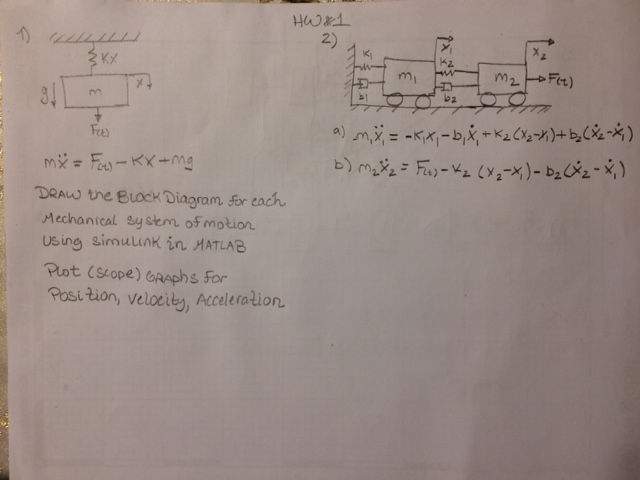 HW#1
1)
KX
g
m
x
F(t)
mẍ = F(t) - KX + mg
DRAW the BLOCK Diagram for each
Mechanical system of motion
Using simulink in MATLAB
Plot (scope) GRAPHS for
Position, Velocity, Acceleration
2)
x₁
x₂
K₁
K₂
m₁
m₂
F(t)
b₁
b₂
a) m₁ẍ₁ = -K₁x₁ - b₁ẋ₁ + K₂(x₂-x₁) + b₂(ẋ₂-ẋ₁)
b) m₂ẍ₂ = F(t) - K₂ (x₂-x₁) - b₂(ẋ₂ - ẋ₁)